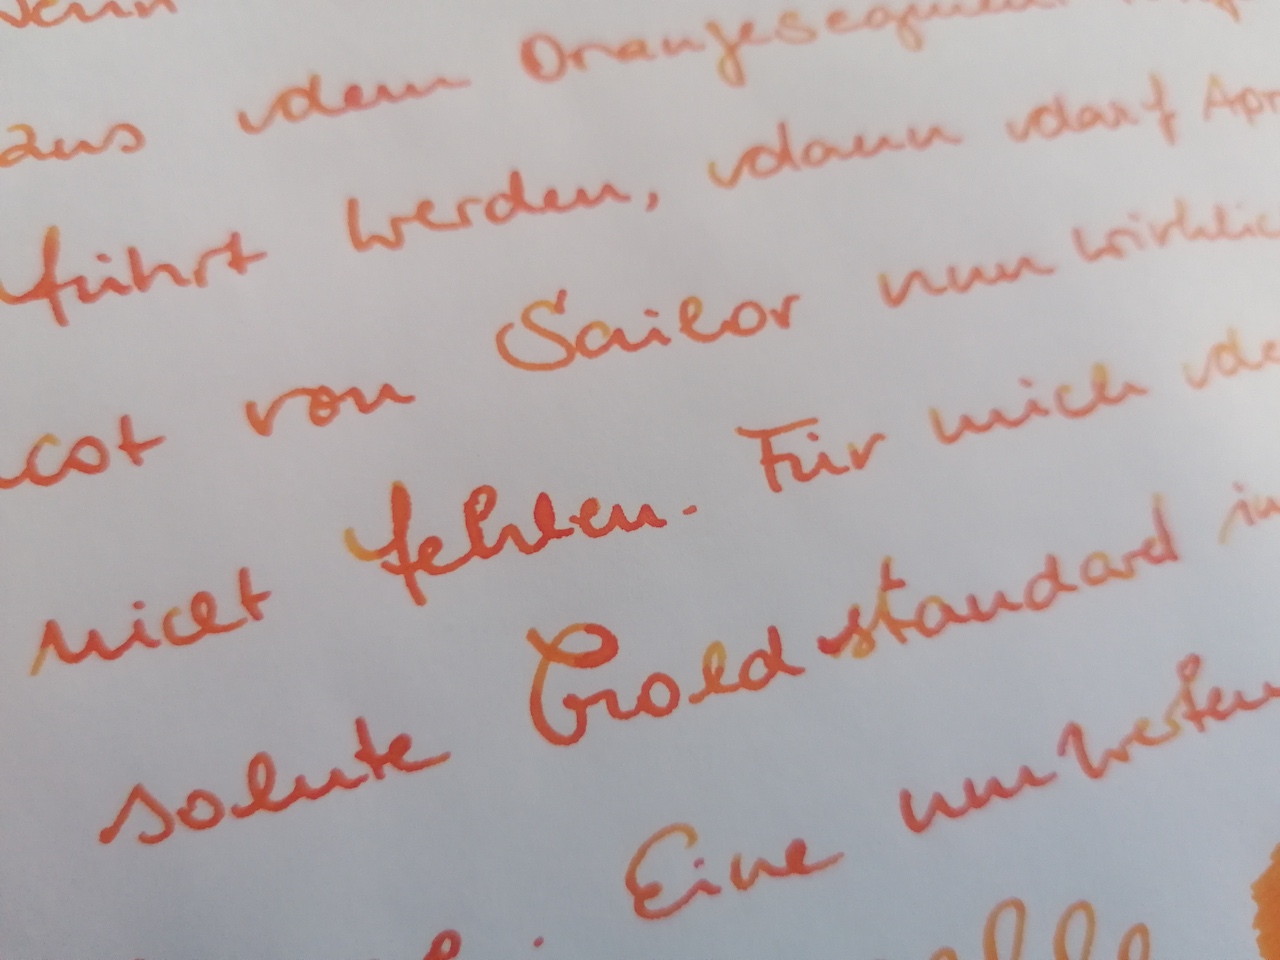 aus dem Orangesegment
führt werden, dann darf Apri
cot von Sailor nun wirklic
nicht fehlen. Für mich de
solute Goldstandard in
Eine